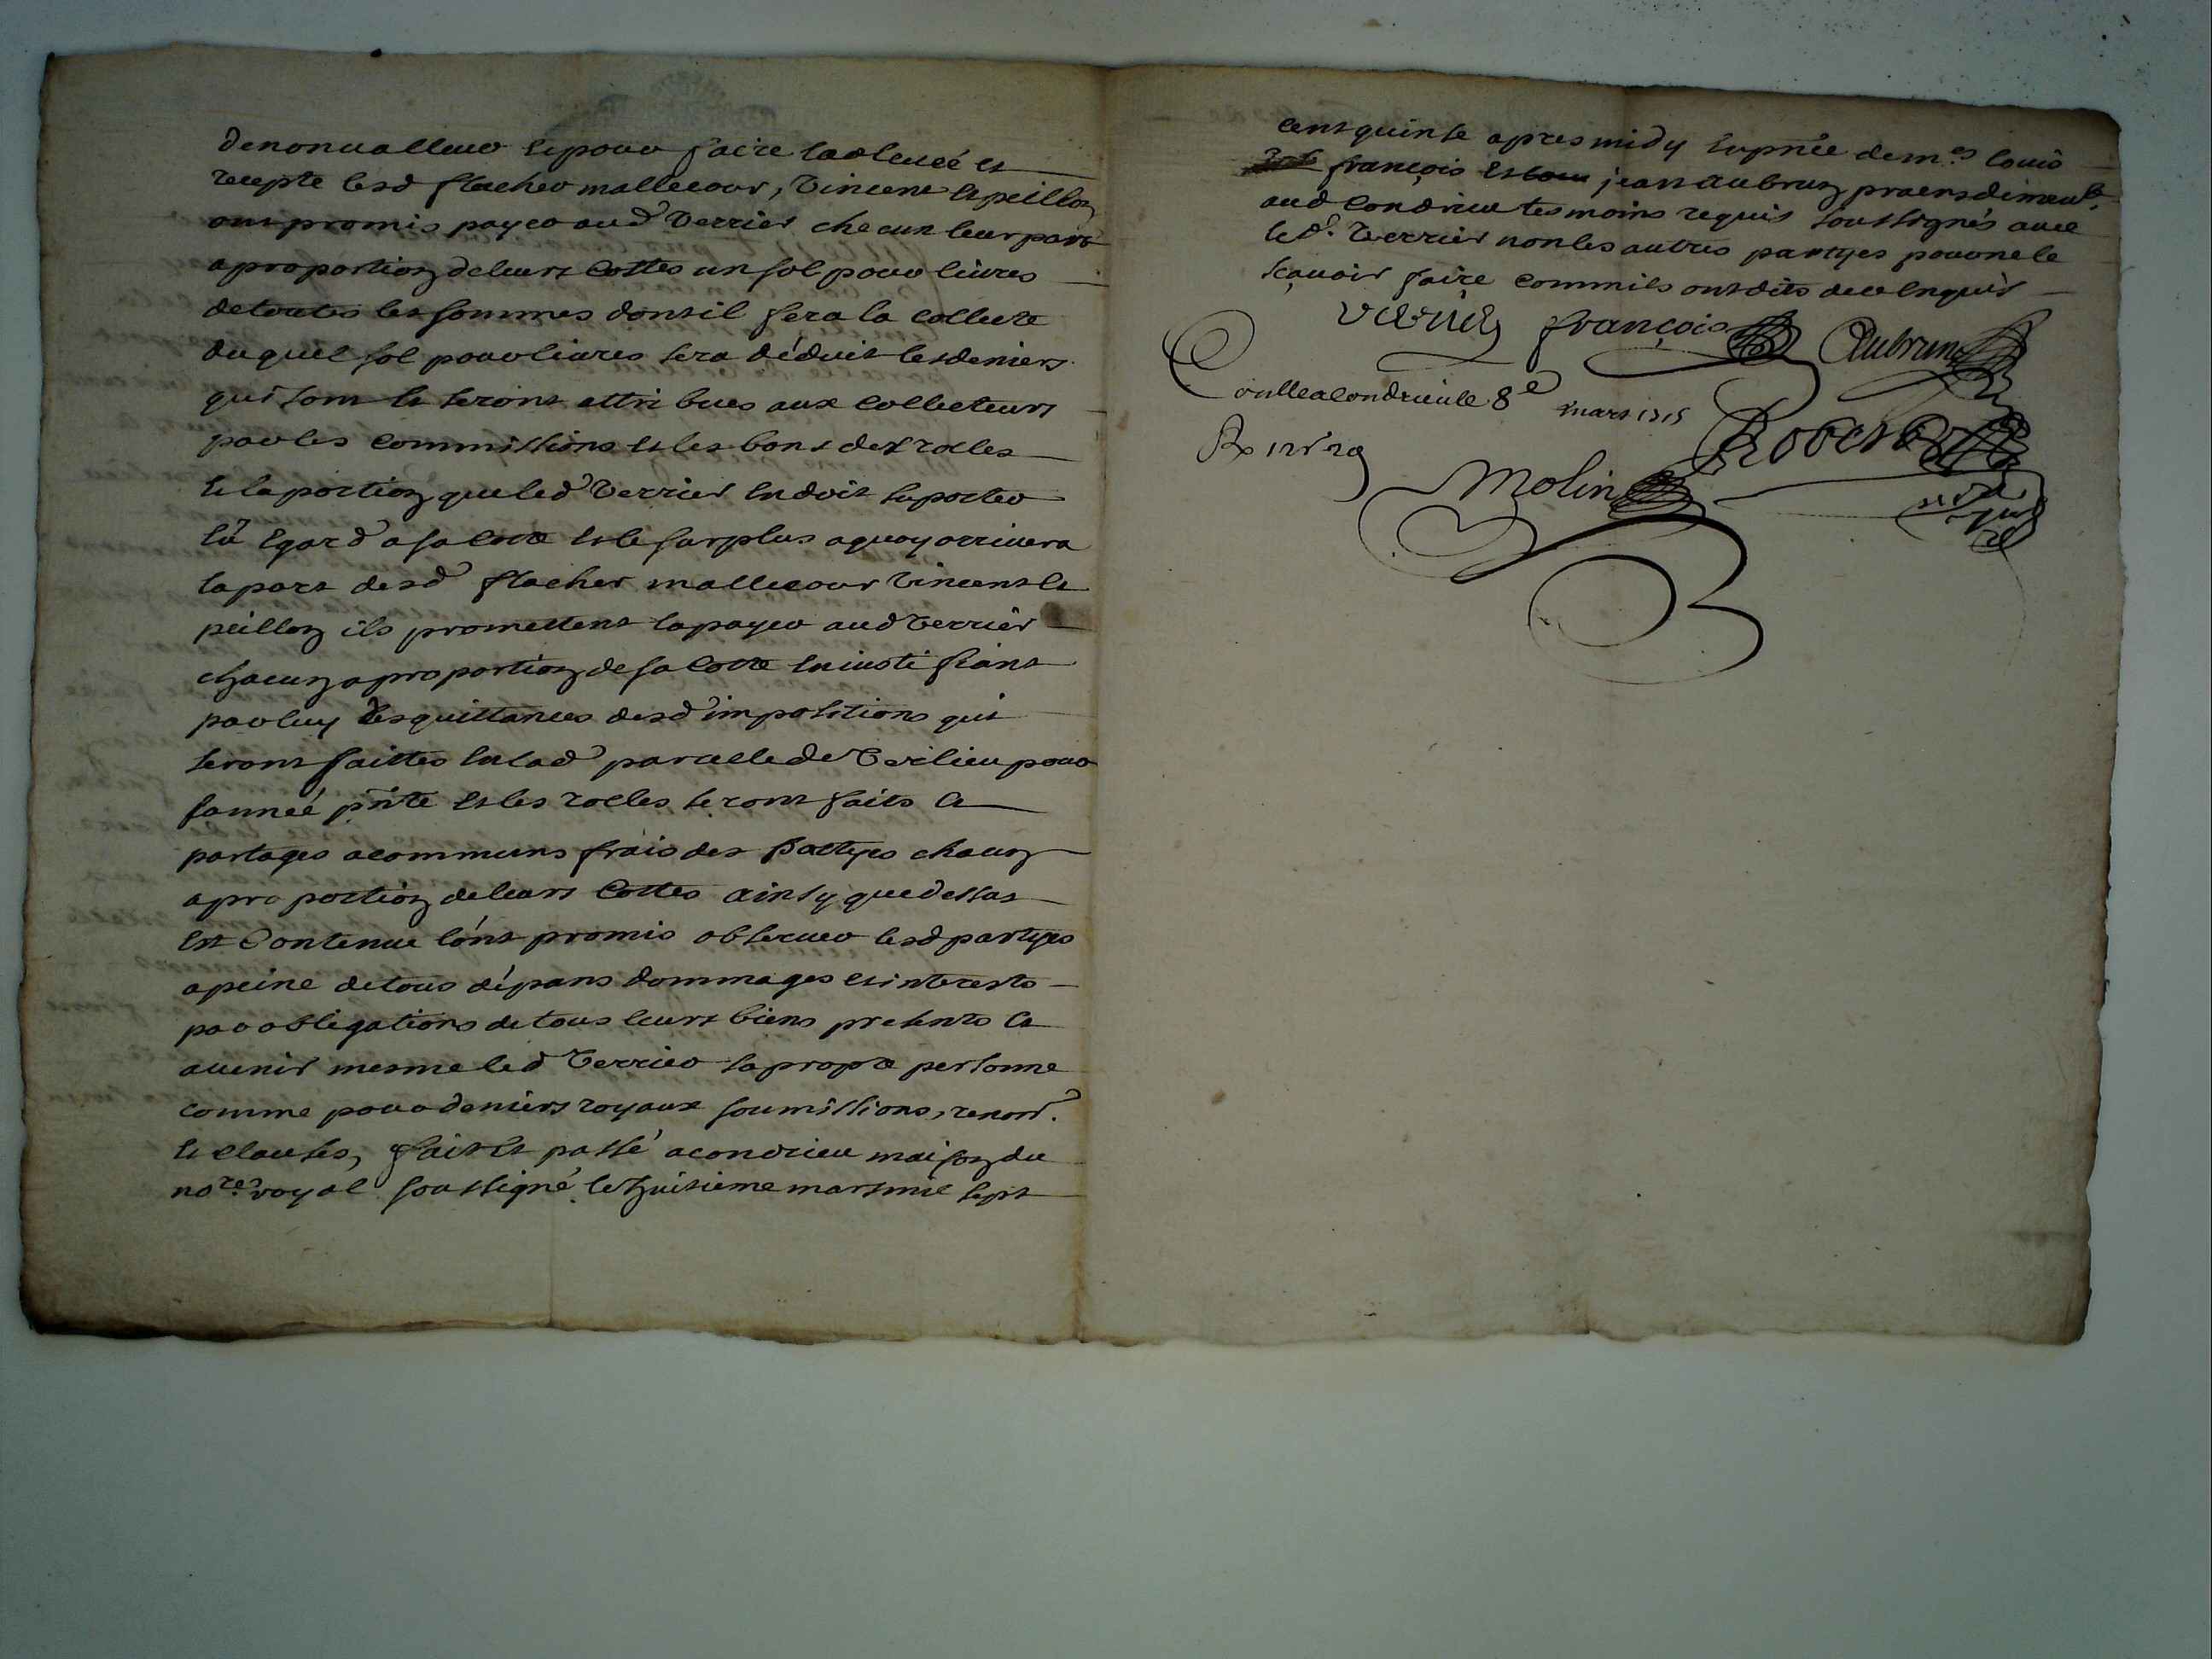 de nonualleur et pour faire lad leueé et
recepte lesd flacher mallecour, Vincent et peillon
ont promis payer aud Verrier checun leur part
a proportion de leurs Cottes un sol pour liures
de toutes les sommes dont il fera la Collecte
du quel sol pour liures sera déduit les deniers
qui sont et seront attribues aux Collecteurs
par les Commissions et les bons des rolles
et la portion que led Verrier en doit suporter
eu Egard a sa Cotte et le surplus a quoy arriuera
la part desd flacher mallecour Vincent et
peillon ils promettent la payer aud Verrier
chacun a proportion de sa Cotte en justifiant
par luy des quittances desd impositions qui
seront faittes en lad parcelle de Verlieu pour
l'anneé pnte et les rolles seront faits et
partages a communs frais des partyes chacun
a proportion de leurs Cottes ainsy que dessus
est Contenue l'ont promis obseruer lesd partyes
a peine de tous dépans dommages et interests
par obligations de tous leurs biens presents et
auenir mesme led Verrier sa propre personne
comme pour deniers royaux soumissions, renon.
et clauses, fait et passé a condrieu maison du
nore royal soussigné le huitieme mars mil sept
cent quinse apres midy en pnce de mes louis
françois et jean aubrun praens dimeut.
aud Condrieu tesmoins requis soussignés auec
led. Verrier non les autres partyes pour ne le
sçauoir faire comm ils ont dits de ce enquis
Verrier françois Aubrun
Conlle a condrieu le 8e mars 1715
Rx 12s
Molin Robert